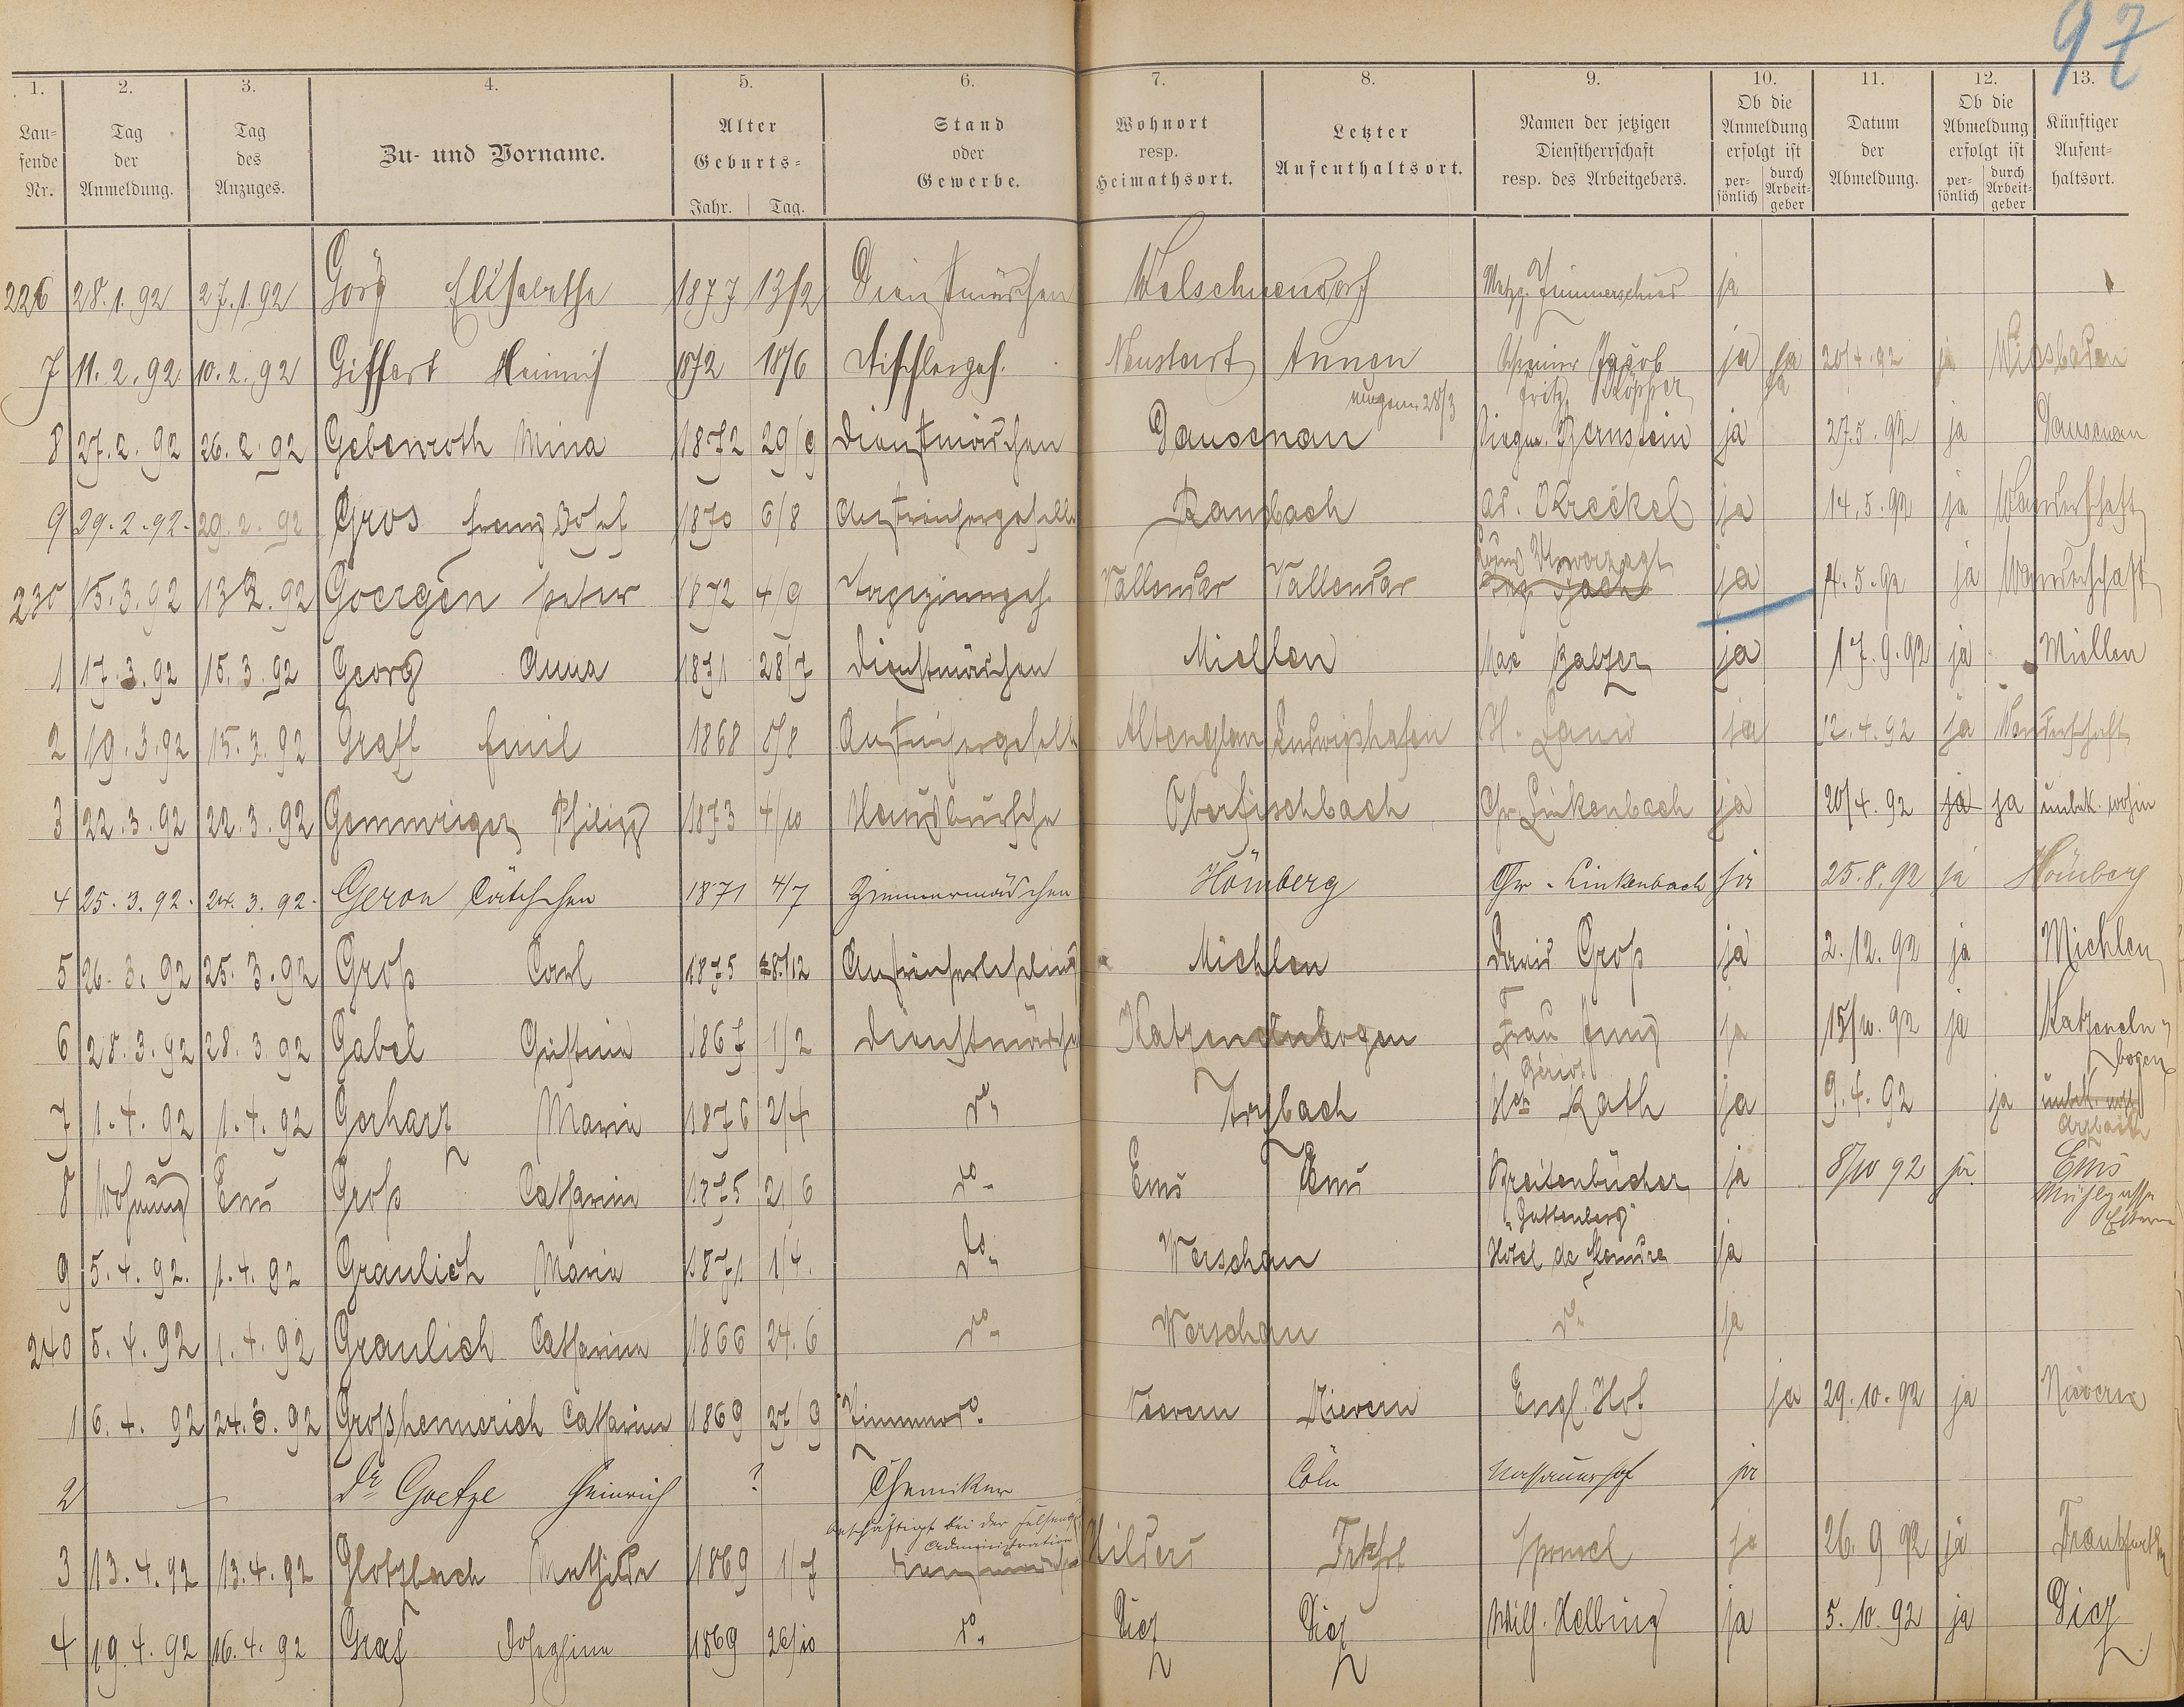 97
1. 2. 3. 4. 5. 6. 7. 8. 9. 10. 11. 12. 13.
Lau-
fende
Nr.
Tag
der
Anmeldung.
Tag
des
Anzuges.
Zu- und Vorname.
Alter
Geburts-
Jahr. Tag.
Stand
oder
Gewerbe.
Wohnort
resp.
Heimathsort.
Letzter
Aufenthaltsort.
Namen der jetzigen
Dienstherrschaft
resp. des Arbeitgebers.
Ob die
Anmeldung
erfolgt ist
per-
sönlich
durch
Arbeit-
geber
Datum
der
Abmeldung.
Ob die
Abmeldung
erfolgt ist
per-
sönlich
durch
Arbeit-
geber
Künftiger
Aufent-
haltsort.
226 28.1.92 27.1.92 Görg Elisabetha 1877 13/2 Dienstmädchen Welschneudorf Metzg. Zimmerschied ja
7 11.2.92 10.2.92 Giffart Heinrich 1872 18/6 Tischlerges. Neustadt Annen Schreiner Jacob ja ja 20/4.92 ja Wiesbaden
28/3 Fritz ja
8 27.2.92 26.2.92 Gebenroth Mina 1872 29/9 Dienstmädchen Dausenau Siegm. Bernstein ja 27.5.92 ja Dausenau
9 29.2.92. 29.2.92 Gros Franz Josef 1870 6/8 Anstreichergeselle Ransbach ja 14.5.92 ja Wanderschaft
Unverzagt
230 15.3.92 13.2.92 Goergen Peter 1872 4/9 Vallendar Vallendar ja 4.5.92 ja Wanderschaft
1 17.3.92 15.3.92 Georg Anna 1871 28/7 Dienstmädchen Miellen Max Balzer ja 17.9.92 ja Miellen
2 19.3.92 15.3.92 Graff Emil 1868 5/8 Anstreichergeselle Altenglan Ludwigshafen H. ja 12.4.92 ja Wanderschaft
3 22.3.92 22.3.92 Gemmriger Philipp 1873 4/10 Hausbursche Oberfischbach Chr. Linkenbach ja 20/4.92 ja ja unbek. wohin
4 25.3.92. 24.3.92. Geron Cätchchen 1871 4/7 Zimmermädchen Hömberg Chr. Linkenbach ja 25.8.92 ja Hömberg
5 26.3.92 25.3.92 Groß Carl 1875 28/12 Anstreicherlehrling Miehlen David Groß ja 2.12.92 ja Miehlen
6 28.3.92 28.3.92 Gabel Christine 1867 1/2 Dienstmädchen Katzenelnbogen Frau Jung ja 15/10.92 ja Katzeneln-
bogen
7 1.4.92 1.4.92 Gerharz Maria 1876 2/4 do. Arzbach Rath ja 9.4.92 ja
Arzbach
8 Wohnung Ems Groß Catharina 1875 21/6 do. Ems Ems Breitenbücher ja 8/10 92 ja Ems
"Guttenberg" Mühlgasse
Eltern
9 5.4.92. 1.4.92 Graulich Maria 1871 1/4. do. Werschau Hotel de Flandre ja
240 5.4.92 1.4.92 Graulich Catharina 1866 24.6 do. Werschau do. ja
1 6.4.92 24.3.92 Großhennerich Catharina 1869 27/9 Zimmerdo. Nievern Nievern Engl. Hof ja 29.10.92 ja Nievern
2 Dr Goetze Heinrich ? Chemiker Cöln Nassauerhof ja
beschäftigt bei der Felsenq.
Administration
3 13.4.92 13.4.92 Glotzbach Mathilde 1869 1/7 Dienstmädchen Hilders Frkfrt ja 26.9.92 ja Frankfurt
4 19.4.92 16.4.92 Graf Josephine 1869 26/10 do. Diez Diez Wilh. Helbing ja 5.10.92 ja Diez